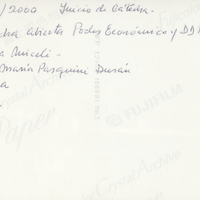 /2000 Inicio de Cátedra.
dra abierta Poder Económico y DD
a Miceli -
María Pasquini Durán
a
FUJIFILM
Crystal Archive
Paper